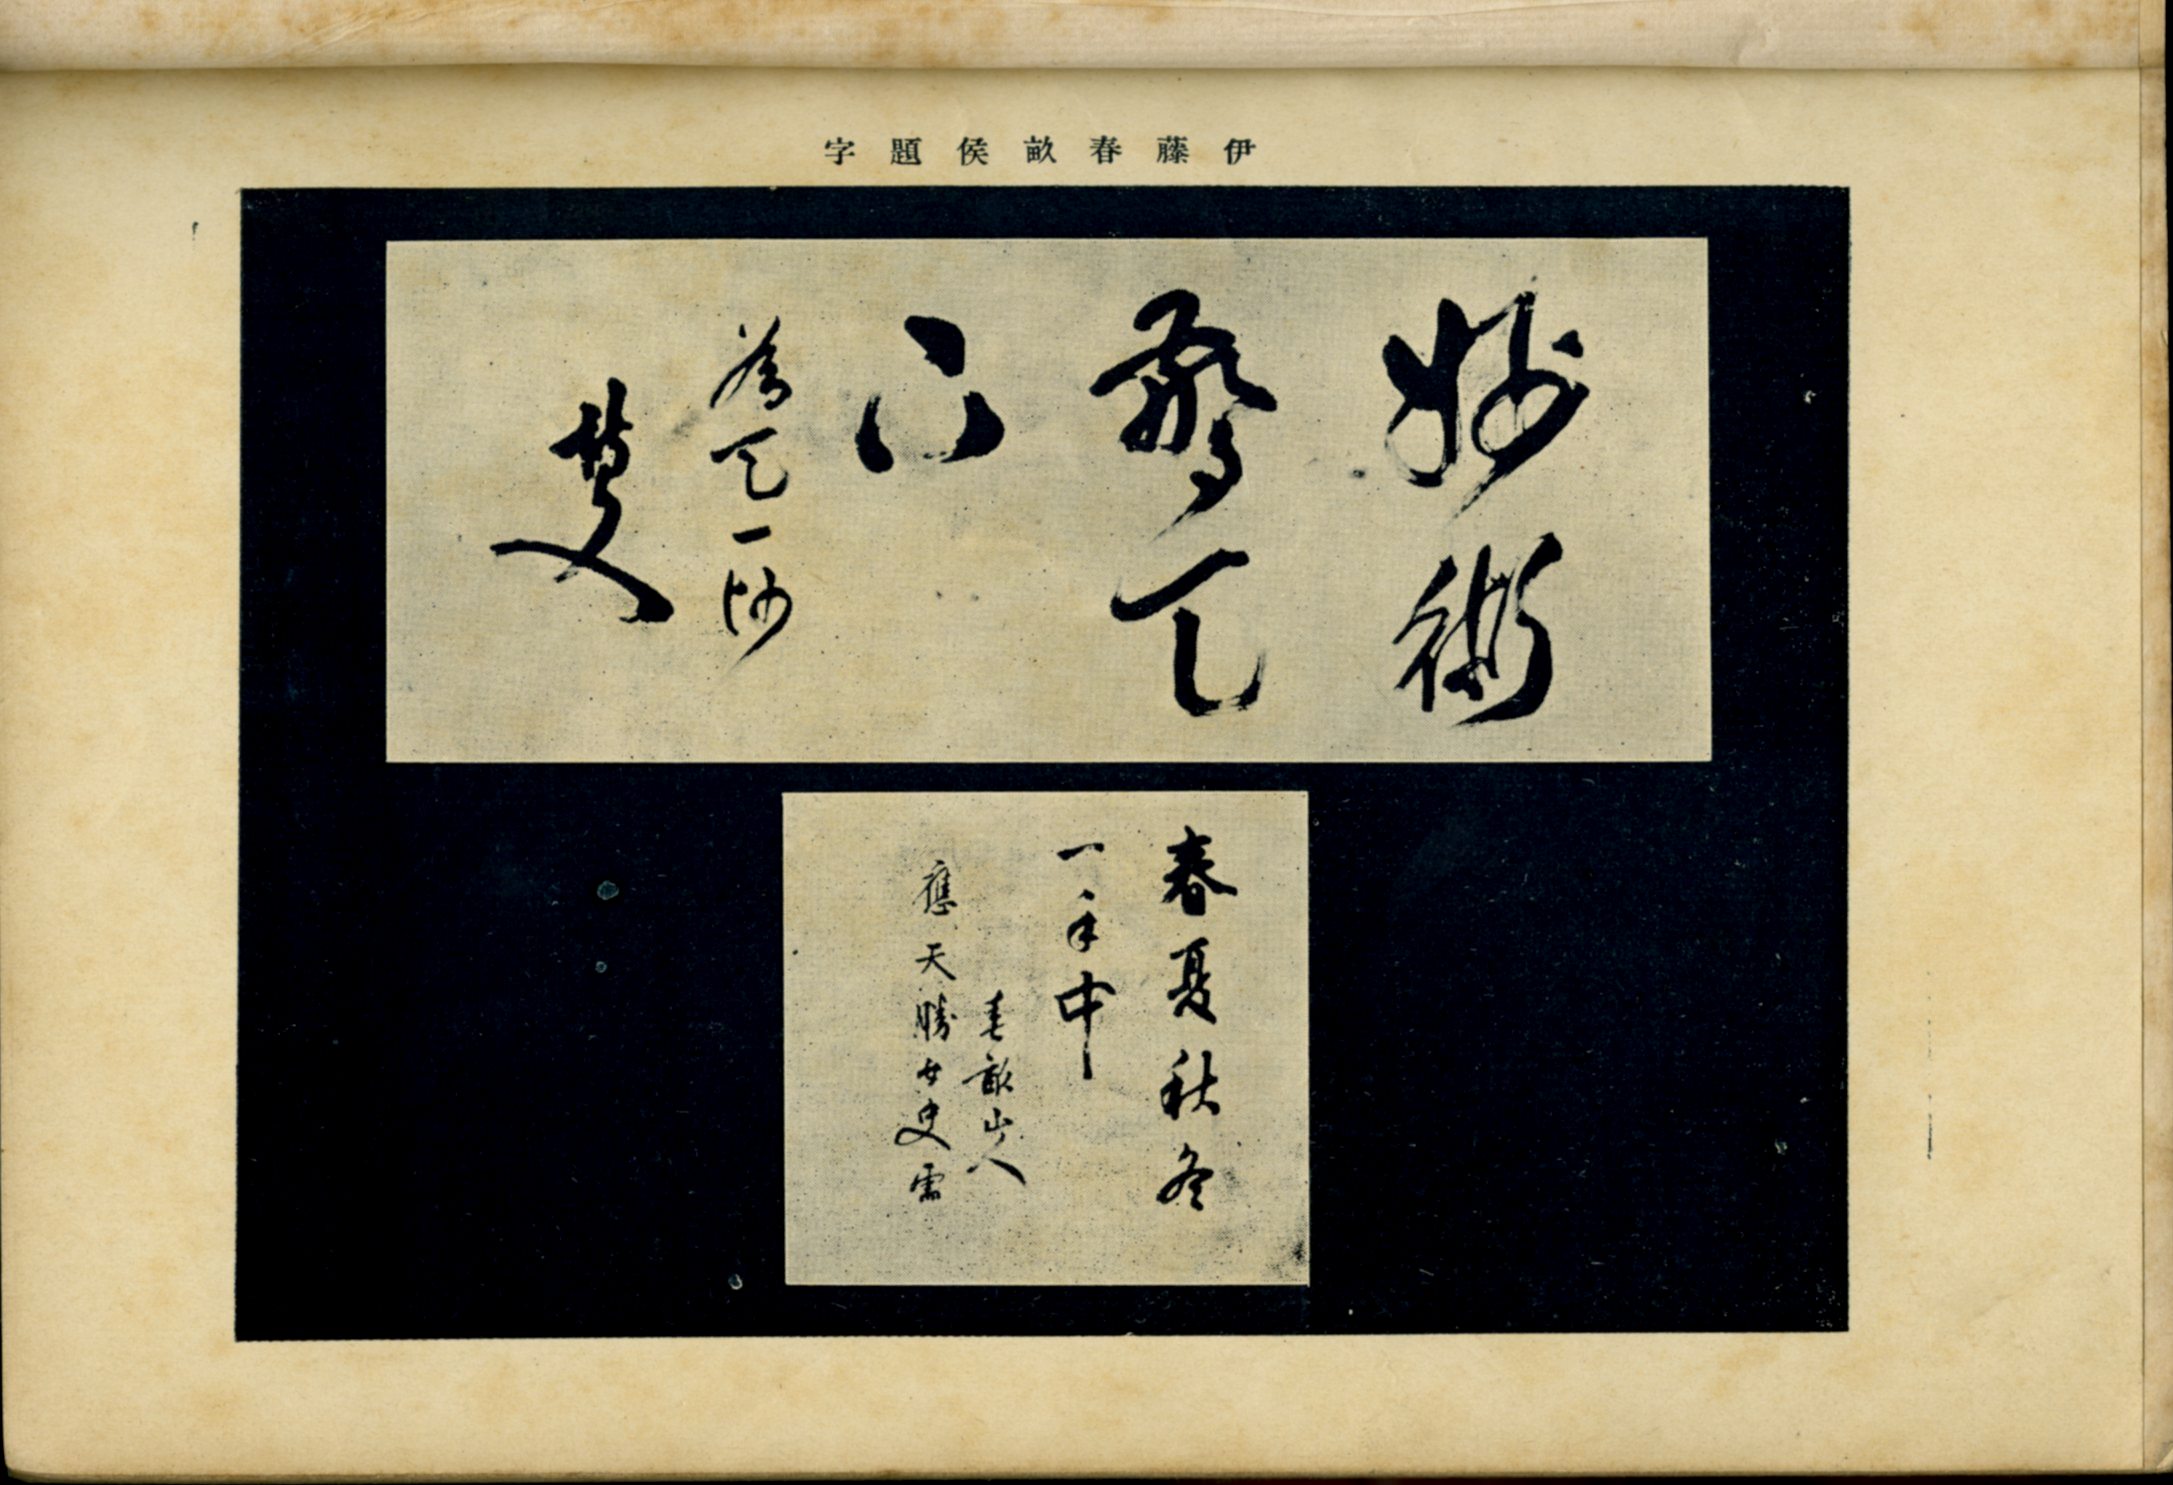 伊藤春畝侯題字
妙術
驚天
下
為天一
博文
春夏秋冬
一手中
春畝山人
應天勝女史需